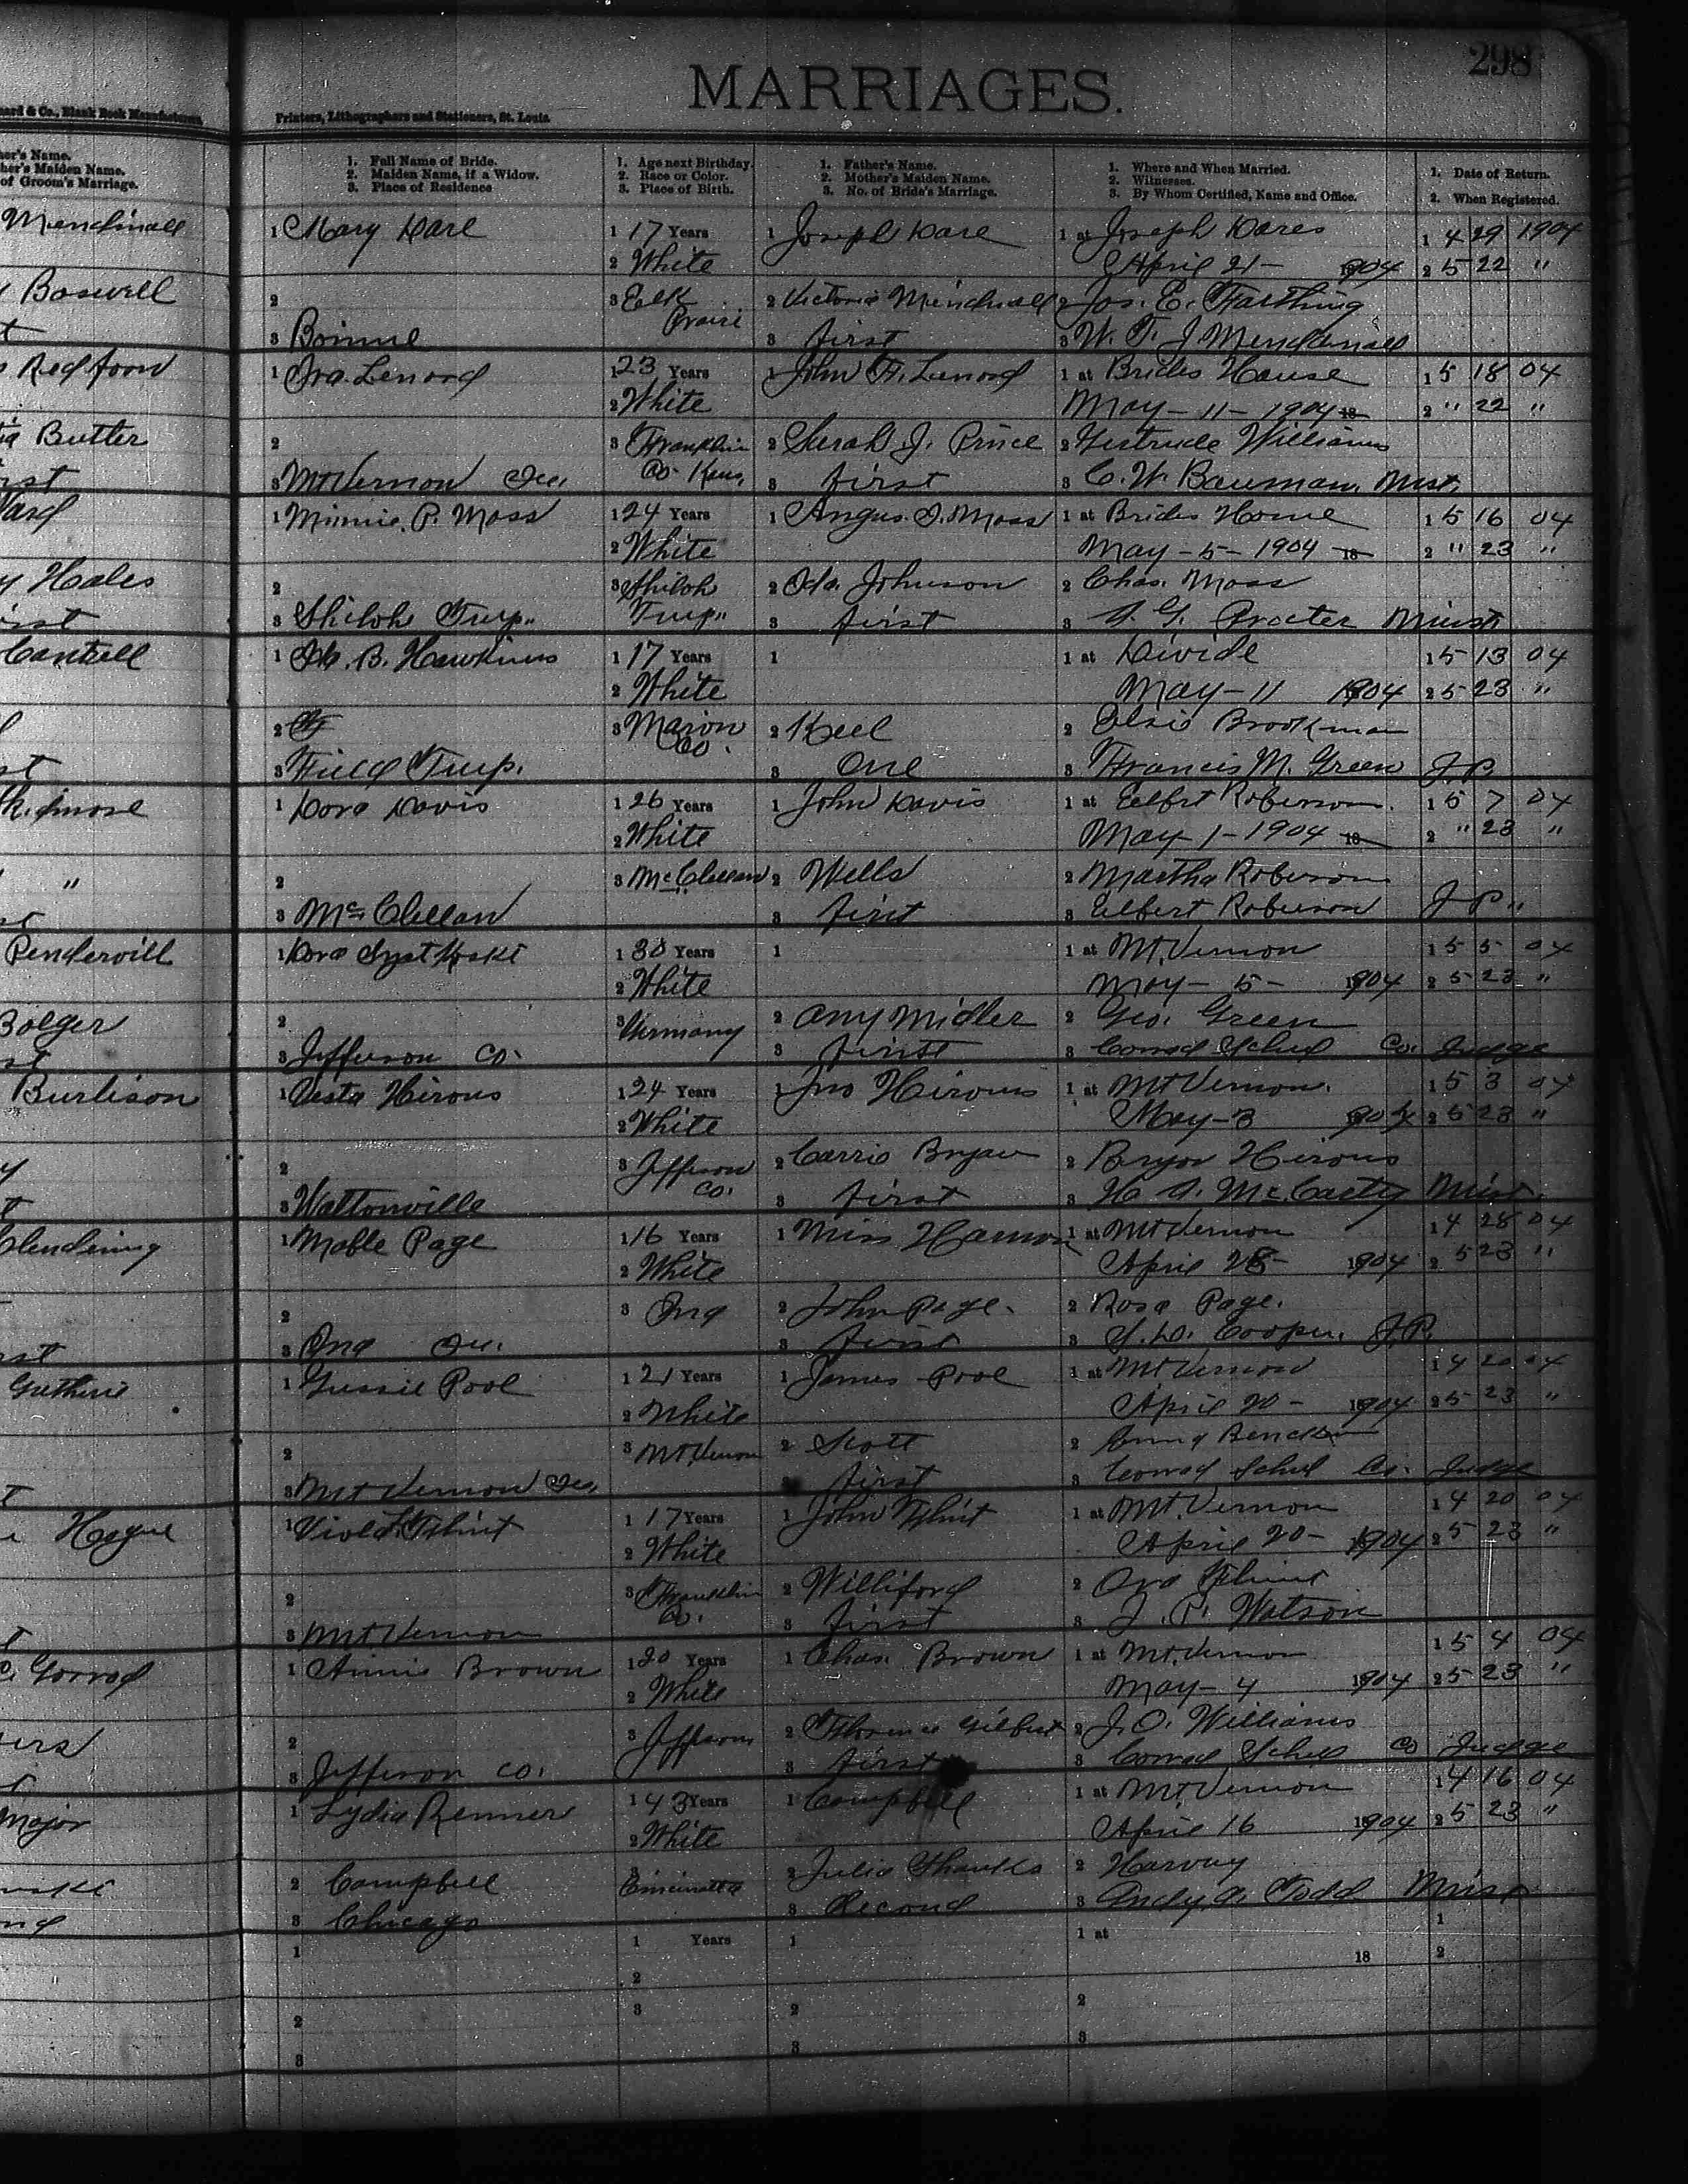 298
MARRIAGES.
Printers, Lithographers and Stationers, St. Louis.
1. Full Name of Bride. 2. Maiden Name, if a Widow. 3. Place of Residence
1. Age next Birthday. 2. Race or Color. 3. Place of Birth.
1. Father's Name. 2. Mother's Maiden Name. 3. No. of Bride's Marriage.
1. Where and When Married. 2. Witnesses. 3. By Whom Certified, Name and Office.
1. Date of Return. 2. When Registered.
1 Mary Dare 1 17 Years 1 Joseph Dare 1 at Joseph Dares 1 4 29 1904
2 White April 21- 1904 2 5 22 "
Boswell
2 3 Elk Prairi 2 Victoria Mendnall 2 Jos. E. Farthing
3 Bonnie 3 first 3 W. T. J. Mendenall
1 Ira Lenord 1 23 Years 1 John F. Lenord 1 at Brides House 1 5 18 04
2 White May-11-1904 18 2 " 22 "
Butler
2 3 Franklin Co. Kans. 2 Sarah J. Prince 2 Gertrude Williams
3 Mt Vernon Ill. 3 first 3 C. W. Bauman. Mist.
1 Minnie. P. Moss 1 24 Years 1 Angus. I. Moss 1 at Brides Home 1 5 16 04
2 White May-5-1904 18 2 " 23 "
Hales
2 3 Shiloh Twp" 2 Ida. Johnson 2 Chas. Moss
3 Shiloh Twp" 3 first 3 Procter Minst
Cantrell
1 B. Hawkins 1 17 Years 1 1 at Divide 1 5 13 04
2 White May-11 1904 2 5 23 "
2 3 Marion Co. 2 Keel 2 Elsie Brookman
3 Field Twp. 3 One 3 Francis M. Green J.P.
1 Dora Davis 1 26 Years 1 John Davis 1 at Elbert Roberson. 1 5 7 04
2 White May-1-1904 18 2 " 23 "
2 3 McClellan 2 Wells 2 Martha Roberson
3 McClellan 3 first 3 Elbert Roberson J P"
Pendervill
1 Dora 1 30 Years 1 1 at Mt. Vernon 1 5 5 04
2 White May-5- 1904 2 5 23 "
Bolger
2 3 Germany 2 Amy Midler 2 Geo. Green
3 Jefferson Co. 3 first 3 Conrad Schul Co. Judge
Burlison
1 Vesta Hirons 1 24 Years 1 Jno Hirons 1 at Mt Vernon. 1 5 3 04
2 White May-3 1904 2 5 23 "
2 3 Jefferson Co. 2 Carrie Bryan 2 Bryon Hirons
3 Waltonville 3 first 3 H. A. McCarty Mist.
Clendening
1 Mable Page 1 16 Years 1 Miss Hamon 1 at Mt Vernon 1 4 28 04
2 White April 28- 1904 2 5 23 "
2 3 Ina 2 John Page. 2 Rosa Page.
3 Ina Ill. 3 first 3 S. D. Cooper. J.P.
Gutherie
1 Gussie Pool 1 21 Years 1 James Pool 1 at Mt Vernon 1 4 20 04
2 White April 20- 1904 2 5 23 "
2 3 Mt. Vernon 2 Scott 2
3 Mt Vernon Ills. 3 first 3 Conrad Schul Co. Judge
Hogue
1 Violet Flint 1 17 Years 1 John Flint 1 at Mt. Vernon 1 4 20 04
2 White April 20- 1904 2 5 23 "
2 3 Franklin Co. 2 Williford 2 Ora Flint
3 Mt Vernon 3 first 3 J. P. Watson
1 Annie Brown 1 20 Years 1 Chas. Brown 1 at Mt. Vernon 1 5 4 04
2 White May-4 1904 2 5 23 "
2 3 Jefferson 2 Florence Gilbert 2 J. O. Williams
3 Jefferson Co. 3 first 3 Conrad Schul Co Judge
Major
1 Lydia Renner 1 43 Years 1 Campbell 1 at Mt Vernon 1 4 16 04
2 White April 16 1904 2 5 23 "
2 Campbell 3 Cincinatta 2 Julia Shanks 2 Harvey
3 Chicago 3 Second 3 Andy. A. Todd Minst
1 1 Years 1 1 at 1
2 18 2
2 3 2 2
3 3 3